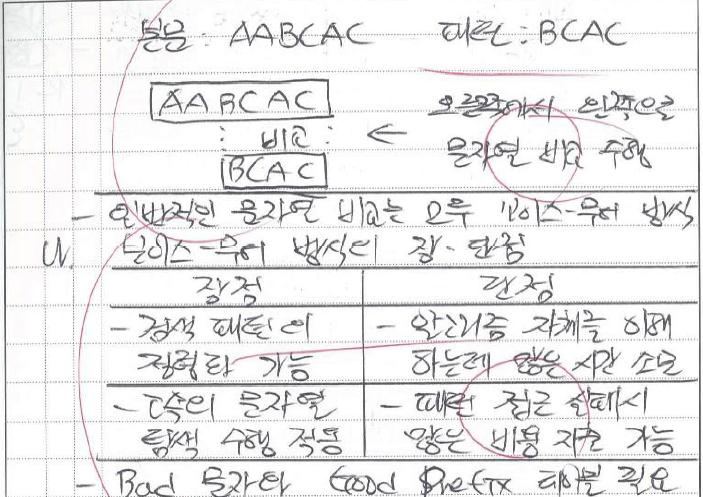 본문 : AABCAC 패턴 : BCAC
AABCAC 오른쪽에서 왼쪽으로
: 비교 : ← 문자열 비교 수행
BCAC
- 일반적인 문자열 비교는 모두 보이스-무어 방식
Ⅳ. 보이스-무어 방식의 장·단점
장점 단점
- 검색 패턴의 - 알고리즘 자체를 이해
정렬화 가능 하는데 많은 시간 소모
- 다수의 문자열 - 패턴 접근 실패시
탐색 수행 적용 많은 비용 지출 가능
- Bad 문자와 Good Prefix 테이블 필요